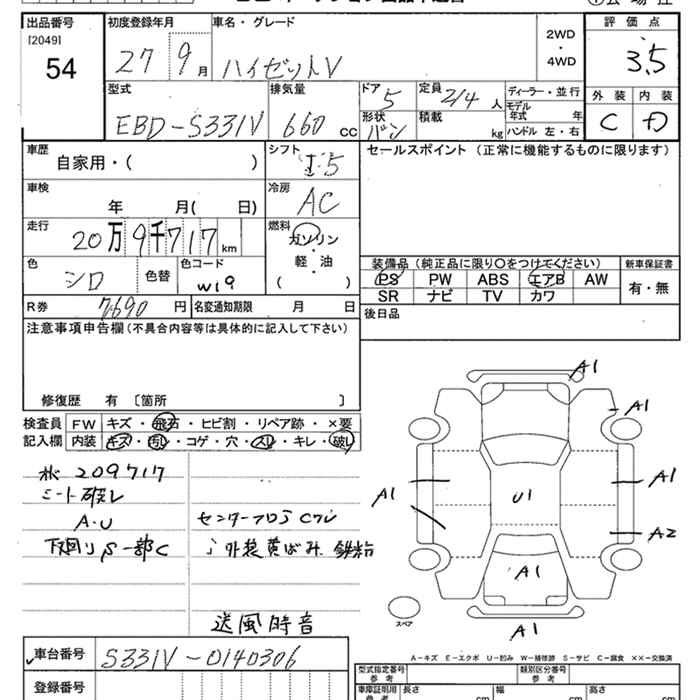 出品番号 初度登録年月 車名・グレード 2WD・4WD 評価点
[2049]
54 27 9月 ハイゼットV 3.5
型式 排気量 ドア 5 定員 2/4人 ディーラー・並行 外装 内装
EBD-S331V 660cc 形状 バン 積載 kg モデル年式 年 C D
ハンドル 左・右
車歴 シフト セールスポイント (正常に機能するものに限ります)
自家用・( ) I・5
車検 冷房
年 月( 日) AC
走行 燃料
20万9千717km ガソリン・軽・油
( )
色 色替 色コード 装備品 (純正品に限り○をつけてください) 新車保証書
シロ W19 PS PW ABS エアB AW 有・無
SR ナビ TV カワ
R券 7690円 名変通知期限 月 日 後日品
注意事項申告欄 (不具合内容等は具体的に記入して下さい)
修復歴 有 〔箇所 〕
検査員 FW キズ・飛石・ヒビ割・リペア跡・×要
記入欄 内装 キズ・汚れ・コゲ・穴・スレ・キレ・破レ
209717
シート破レ
A・U センターフロア Cワレ
下廻り S 一部C 外装黄ばみ
送風時音
A1
A1
A1 U1 A1
A2
A1
A1
スペア
A-キズ E-エクボ U-凹み W-補修跡 S-サビ C-腐食 ××-交換済
車台番号 S331V-0140306
登録番号
型式指定番号 類別区分番号
参考 参考
車庫証明用 長さ cm 幅 cm 高さ cm